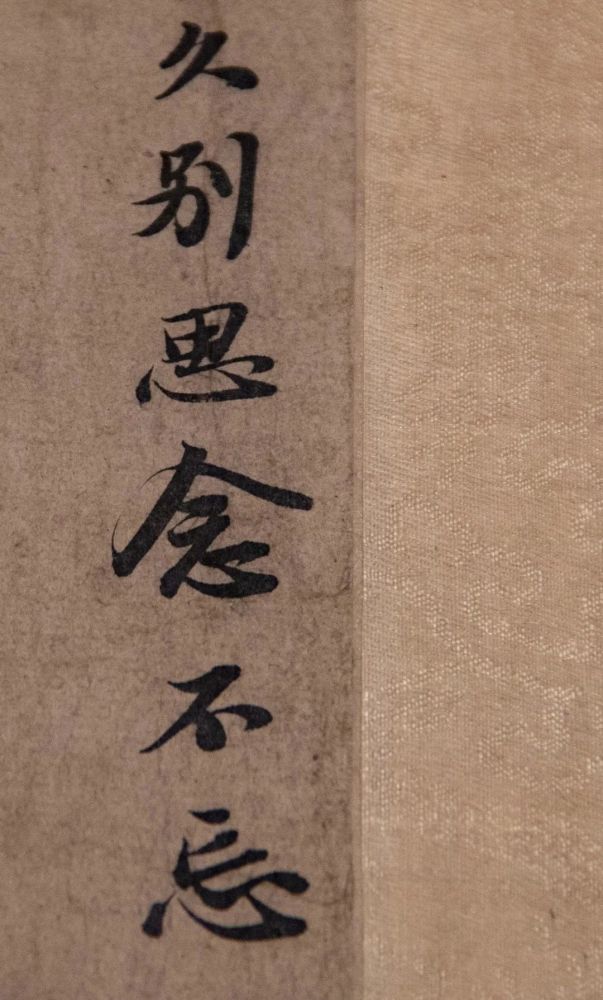 久别思念不忘